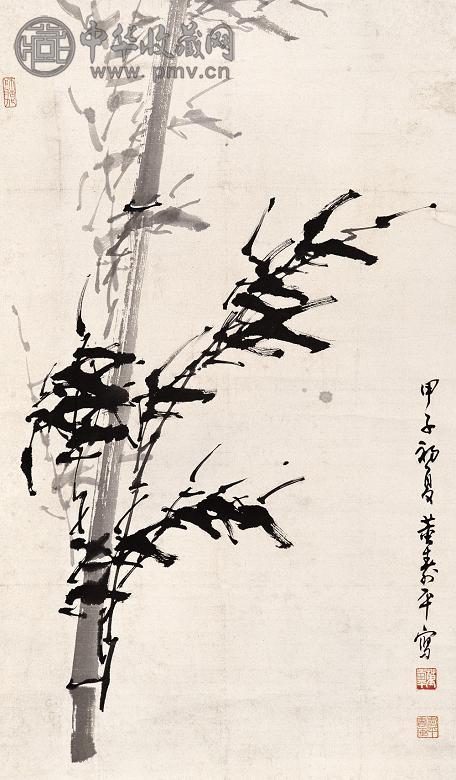 中华收藏网
www.pmv.cn
甲子初夏董寿平写